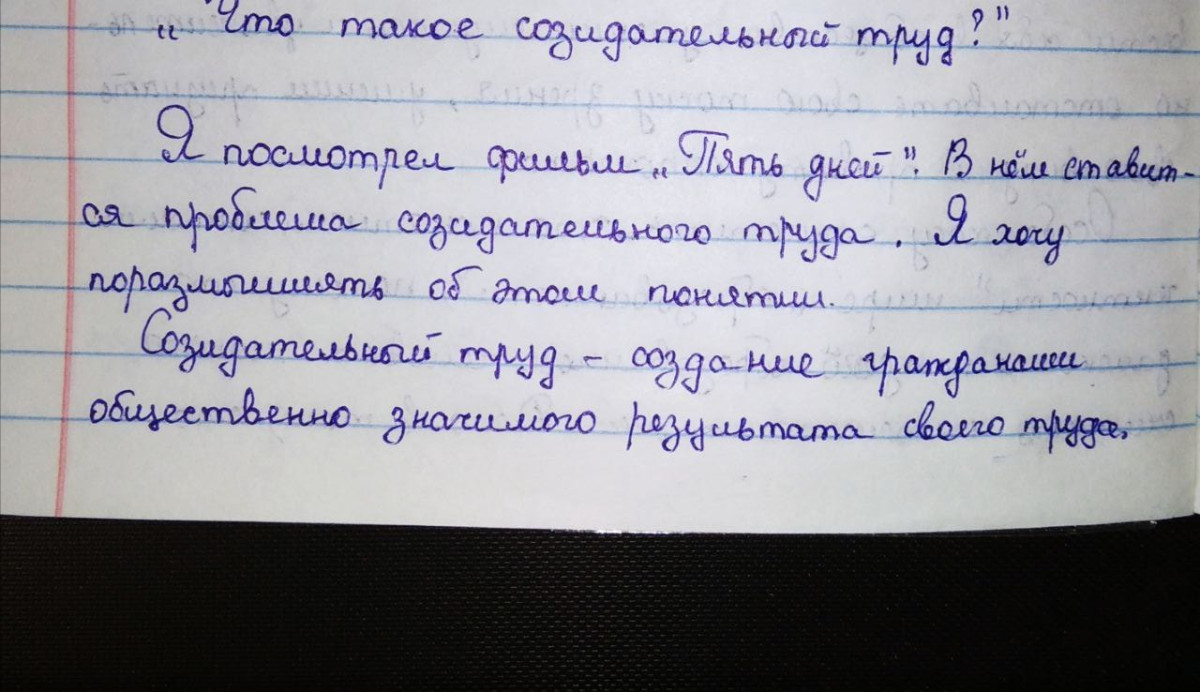 „Что такое созидательный труд?"
Я посмотрел фильм „Пять дней". В нём ставит-
ся проблема созидательного труда. Я хочу
поразмышлять об этом понятии.
Созидательный труд - создание гражданами
общественно значимого результата своего труда,